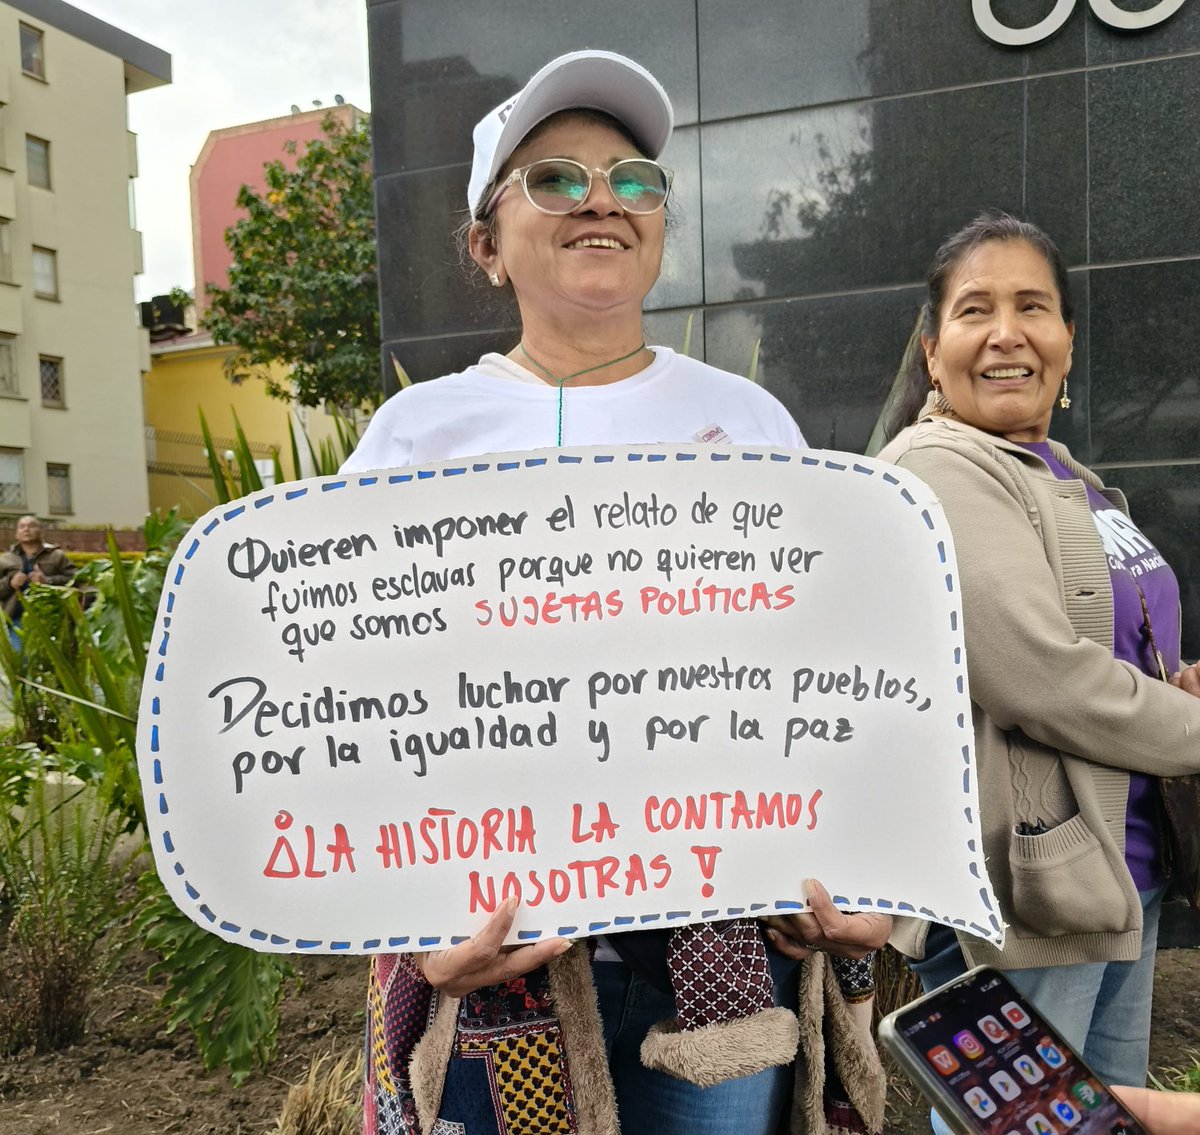 Quieren imponer el relato de que
fuimos esclavas porque no quieren ver
que somos SUJETAS POLÍTICAS
Decidimos luchar por nuestros pueblos,
por la igualdad y por la paz
¡LA HISTORIA LA CONTAMOS
NOSOTRAS!